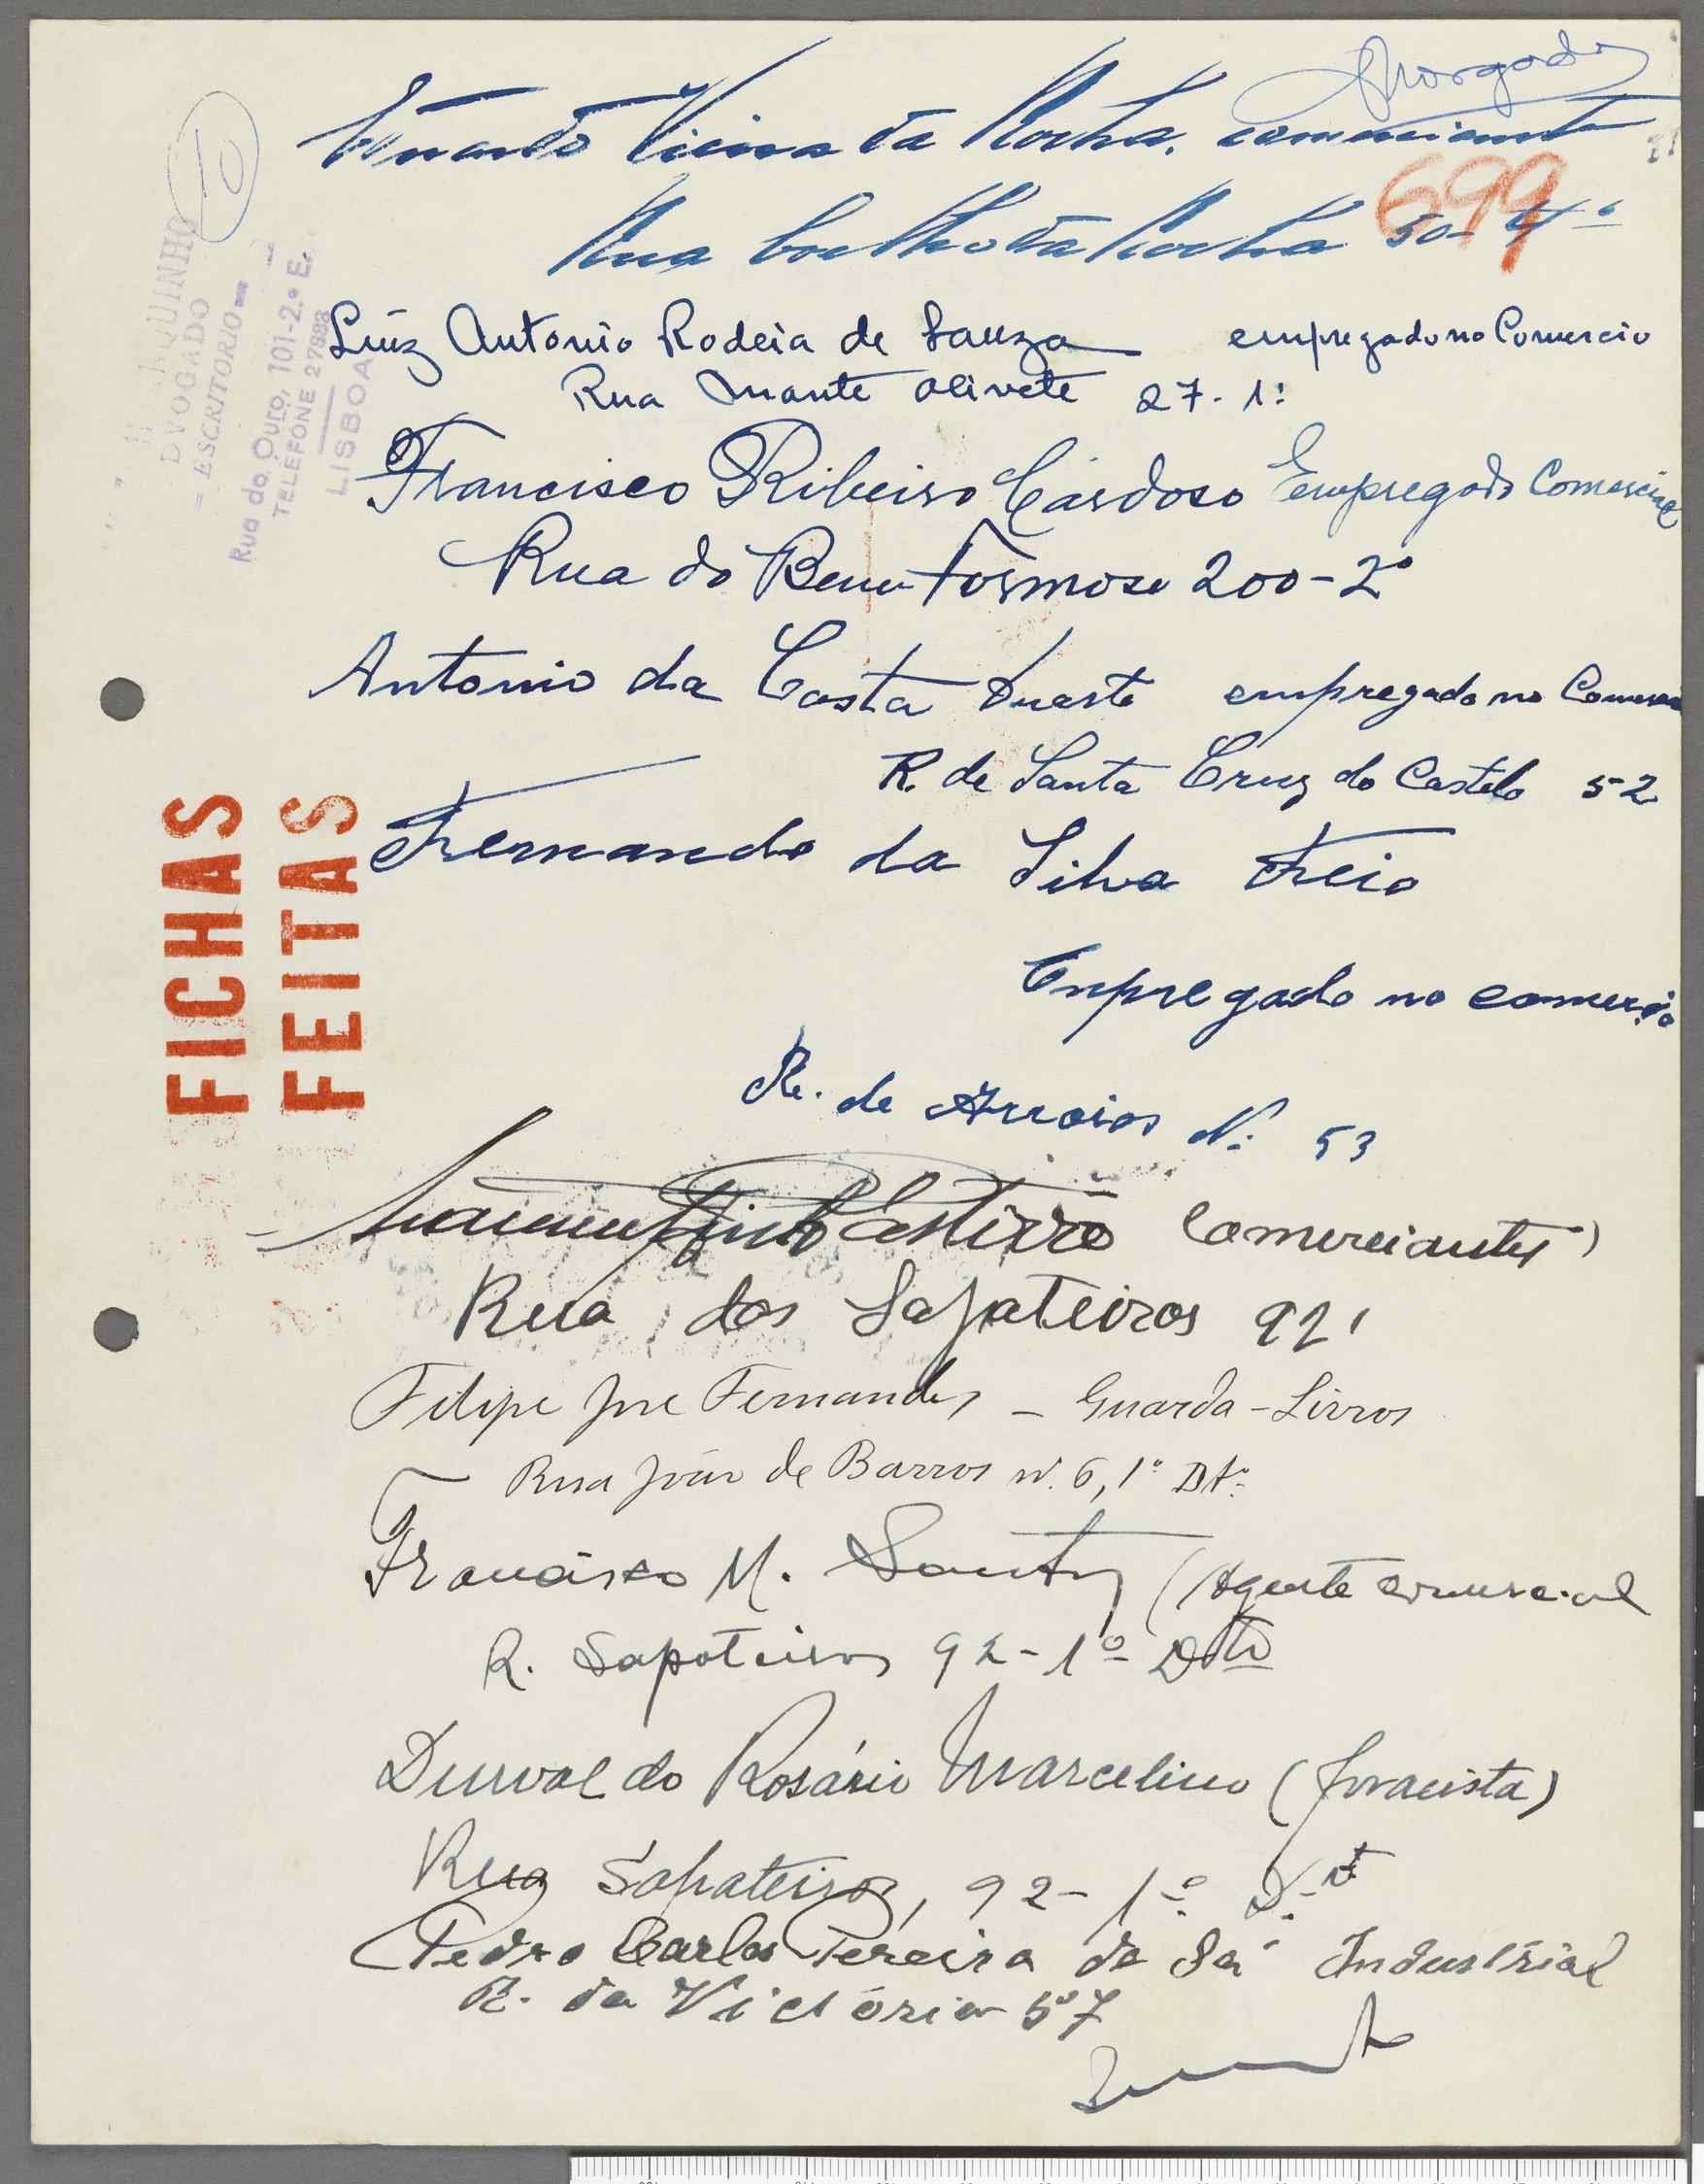 Morgado
10
Vieira da Rocha, comerciante
699
Rua Coelho da Rocha 50-4º
ADVOGADO
= ESCRITORIO =
Rua do Ouro, 101-2.º E.
TELEFONE 27898
LISBOA
Luiz Antonio Rodeia de Sauza empregado no Comercio
Rua Monte Olivete 27-1º
Francisco Ribeiro Cardoso Empregado Comercial
Rua do Bem Formoso 200-2º
Antonio da Costa Duarte empregado no Comercio
R. de Santa Cruz do Castelo 52
FICHAS
FEITAS
Fernando da Silva Feio
Empregado no comercio
R. de Arroios Nº 53
Pinto Comerciante
Rua dos Sapateiros 92
Filipe José Fernandes - Guarda-Livros
Rua João de Barros nº 6, 1º Dtº
Francisco M. Santos (Agente comercial
R. Sapateiros 92-1º Dto
Durval do Rosário Marcelino (
Rua Sapateiros, 92-1º D.to
Pedro Carlos Pereira de Sá Industrial
R. da Victória 57